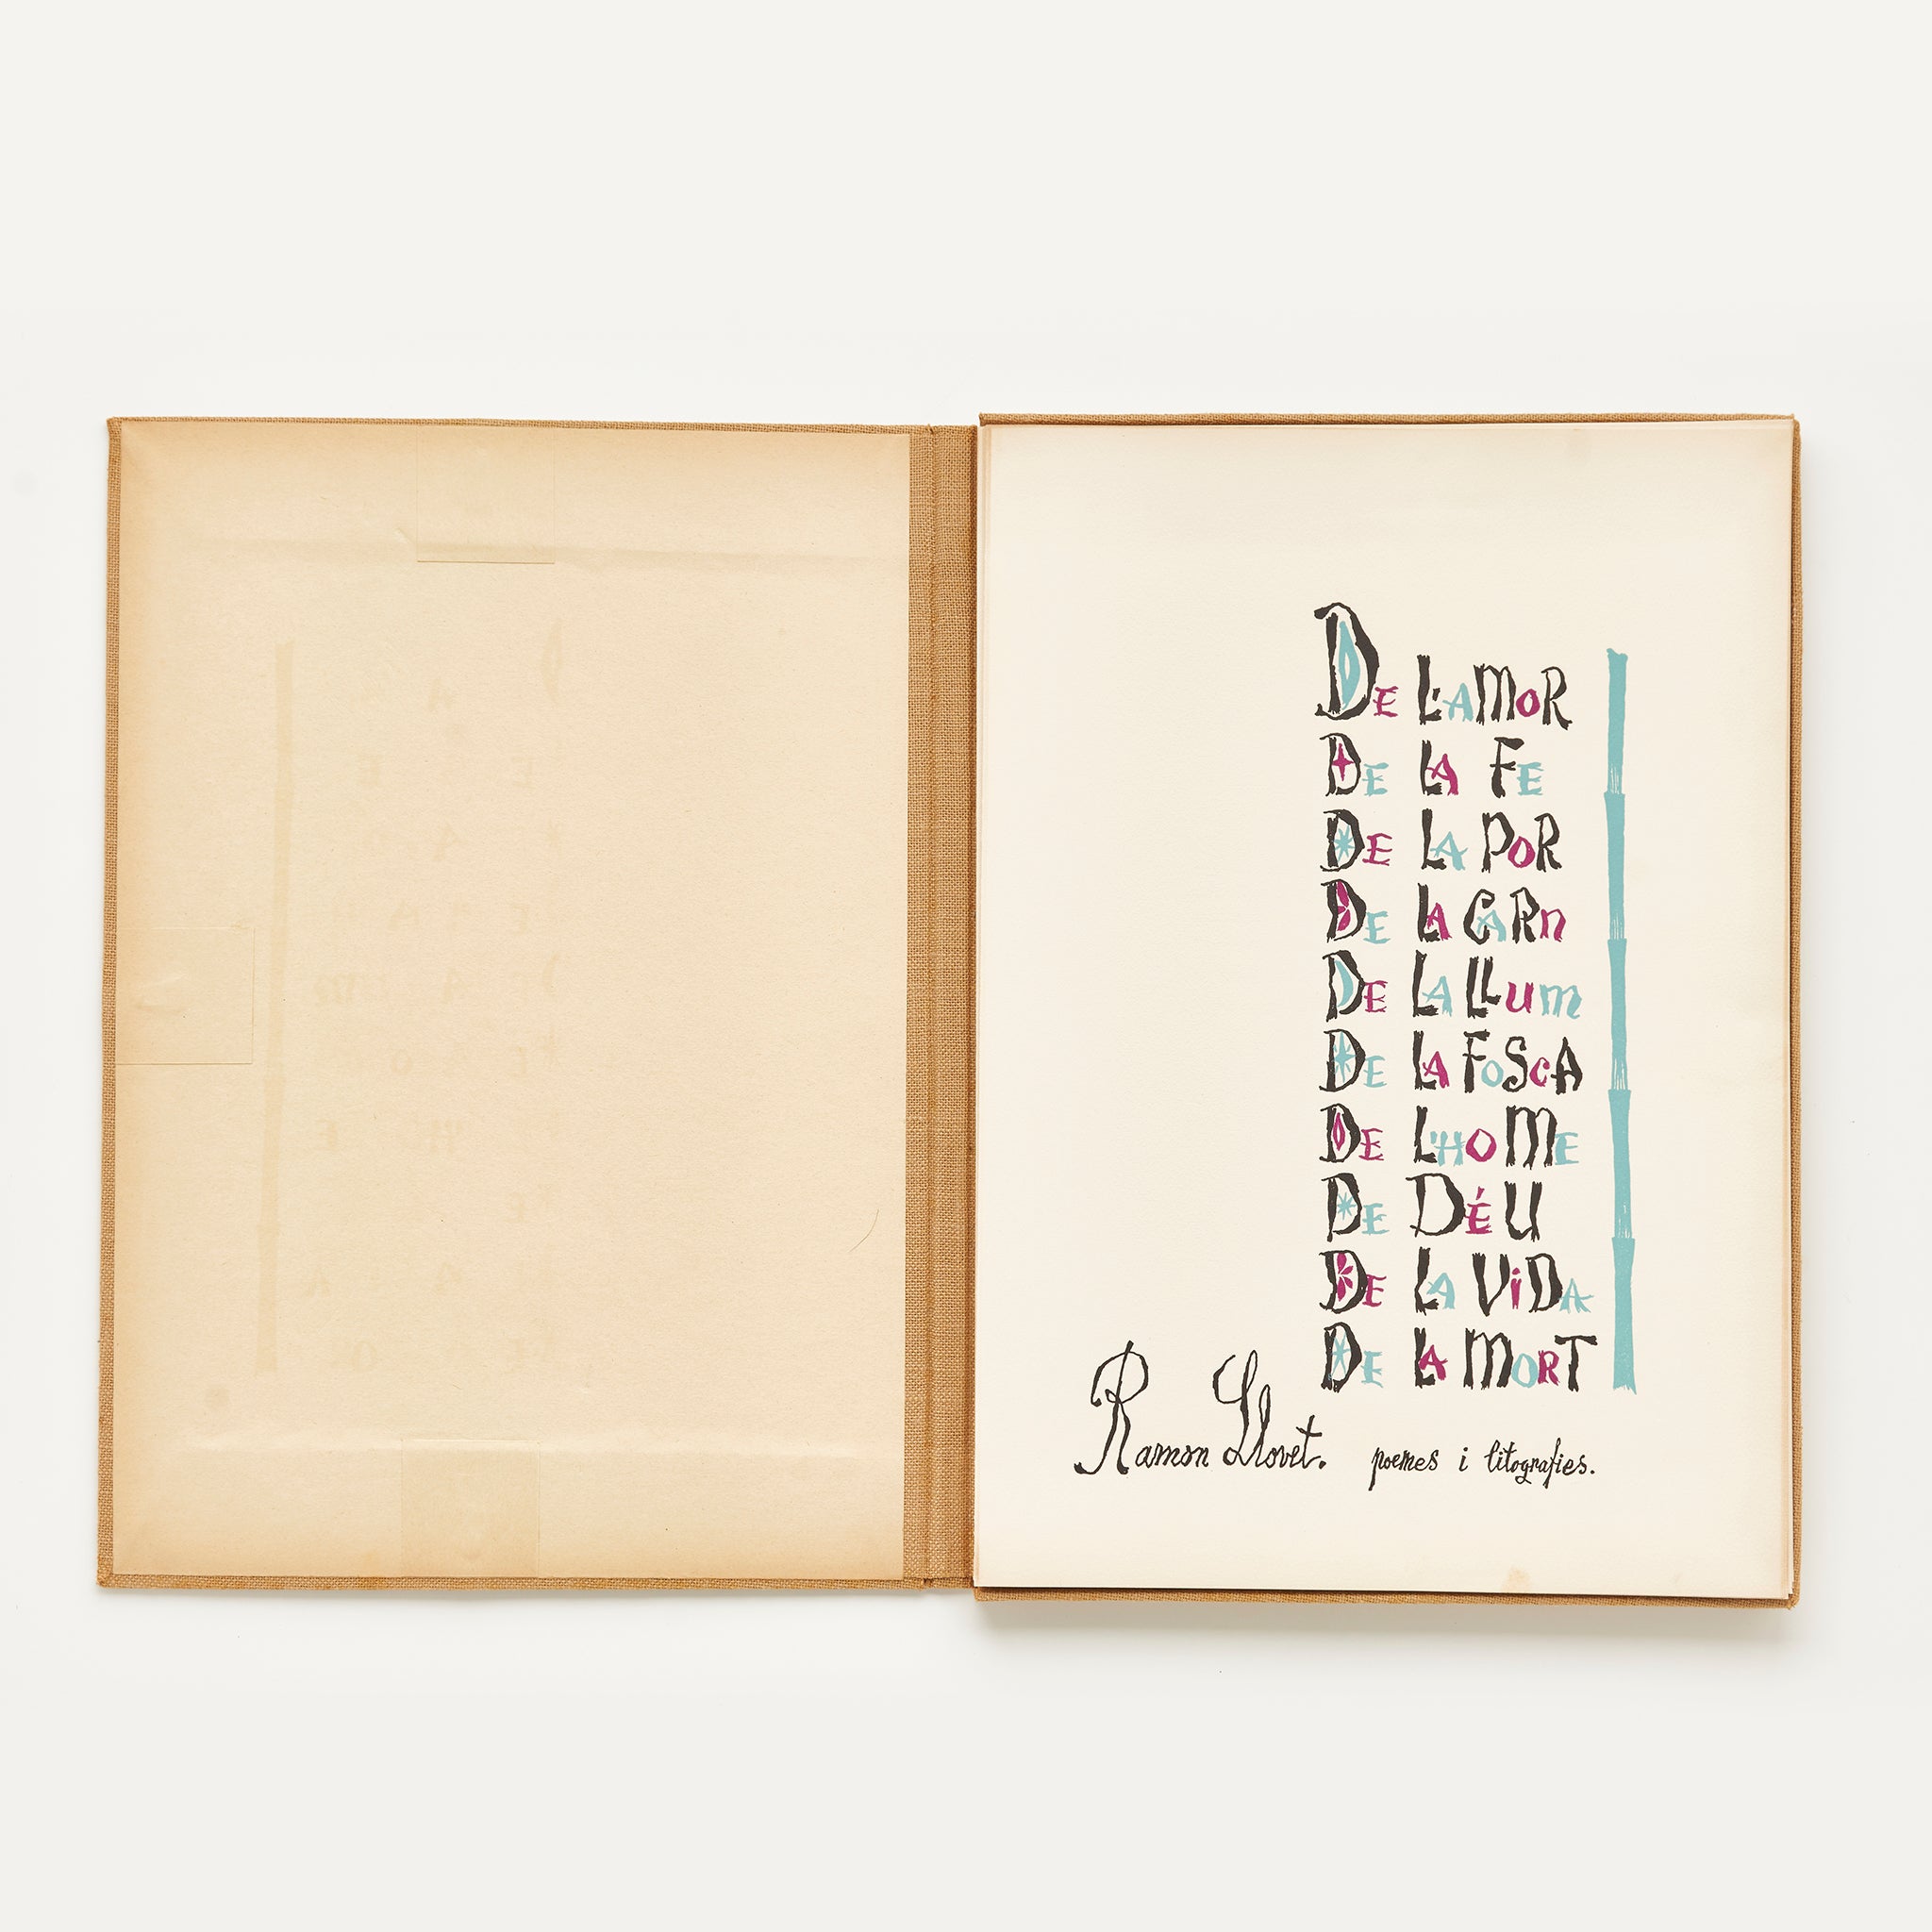 DE L'AMOR
DE LA FE
DE LA POR
DE LA CARn
DE LA LLum
DE LA FOScA
DE L'HOME
DE DÉU
DE LA ViDA
DE LA MORT
Ramon Llovet. poemes i litografies.